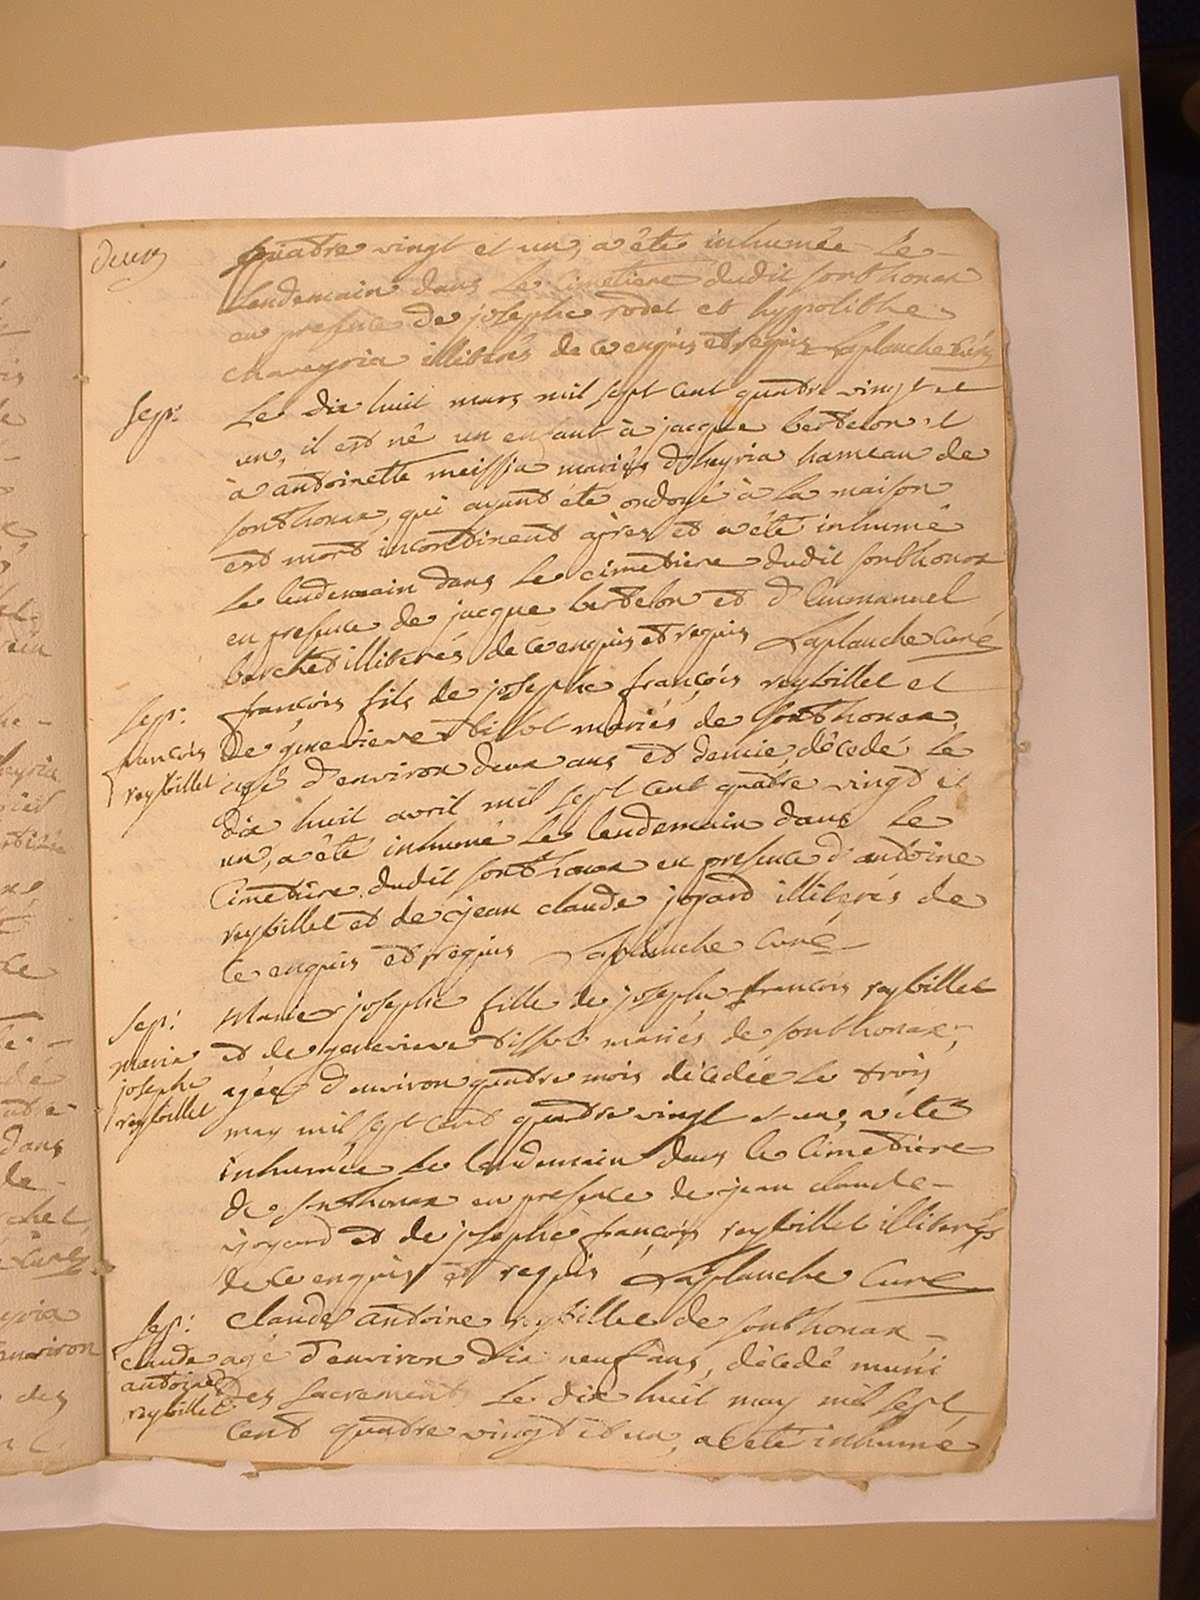 deux
quatre vingt et un, a été inhumée le
lendemain dans le cimetiere dudit sonthonax
en presence de josephe rodet et hypolithe
chareyria illiterés de ce enquis et requis Laplanche Curé
sep:
Le dix huit mars mil sept cent quatre vingt et
un, il est né un enfant à jacque bertelon et
à antoinette meissia mariés d'heyria hameau de
sonthonax, qui ayant été ondoyé à la maison
est mort incontinent après et a été inhumé
le lendemain dans le cimetiere dudit sonthonax
en presence de jacque bertelon et d'Emmanuel
berchet illiterés de ce enquis et requis Laplanche Curé
sep:
françois
reybillet
françois fils de josephe françois reybillet et
de genevieve tissot mariés de sonthonax,
agé d'environ deux ans et demie, décedé le
dix huit avril mil sept cent quatre vingt et
un, a été inhumé le lendemain dans le
Cimetiere dudit sonthonax en presence d'antoine
reybillet et de jean claude joyard illiterés de
ce enquis et requis Laplanche Curé
sep:
marie
josephe
reybillet
Marie josephe fille de josephe francois reybillet
et de genevieve tissot mariés de sonthonax,
agée d'environ quatre mois décedée le trois
may mil sept cent quatre vingt et un, a été
inhumée le lendemain dans le Cimetiere
de sonthonax en presence de jean claude
joyard et de josephe françois reybillet illiterés
de ce enquis et requis Laplanche Curé
sep:
claude
antoine
reybillet
claude antoine reybillet de sonthonax
agé d'environ dix neuf ans, décedé muni
des sacrements le dix huit may mil sept
cent quatre vingt et un, a été inhumé